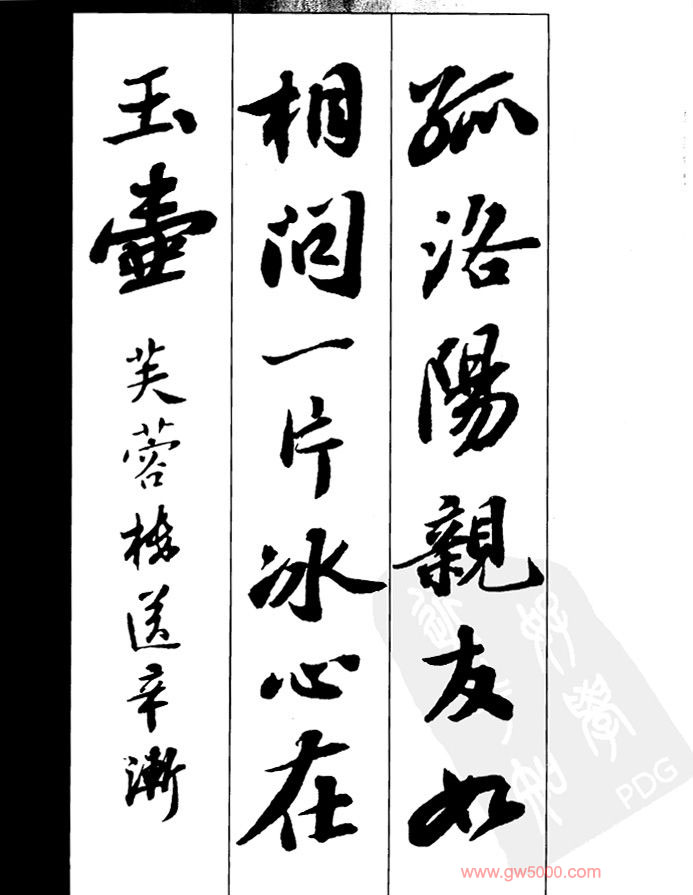 孤洛陽親友如
相问一片冰心在
玉壺
芙蓉楼送辛漸
PDG
www.gw5000.com